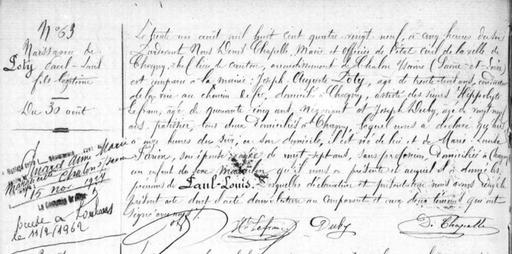 N° 63
Naissance de
Poty Paul-Louis
fils légitime
Du 30 août
15 nov 1927
à Toulouse
le 11/2/1962
Le trente un août mil huit cent quatre-vingt neuf, à cinq heures du soir
devant Nous Denis Chapelle, Maire et officier de l'état civil de la ville de
Chagny, chef lieu de canton, arrondissement de Chalon s/Saône (Saône-et-Loire)
est comparu à la mairie: Joseph Auguste Poty, âgé de trente ans,
de la voie au chemin de fer, domicilié à Chagny, assisté des sieurs Hippolyte
Lefranc, âgé de quarante cinq ans, négociant et Joseph Duby, âgé de
ans, pâtissier, tous deux domiciliés à Chagny, lequel nous a déclaré qu'hier
à heures du soir, en son domicile, il est né de lui et de Marie-Louise
son épouse, âgée de vingt sept ans, sans profession, domiciliée à Chagny
un enfant du sexe qu'il nous a présenté et auquel il a donné les
prénoms de Paul-Louis. Lesquelles déclaration et présentation nous avons rédigé
présent acte dont avons donné lecture au comparant et aux deux témoins qui ont
signé avec nous.
Hte Lefranc Duby D. Chapelle